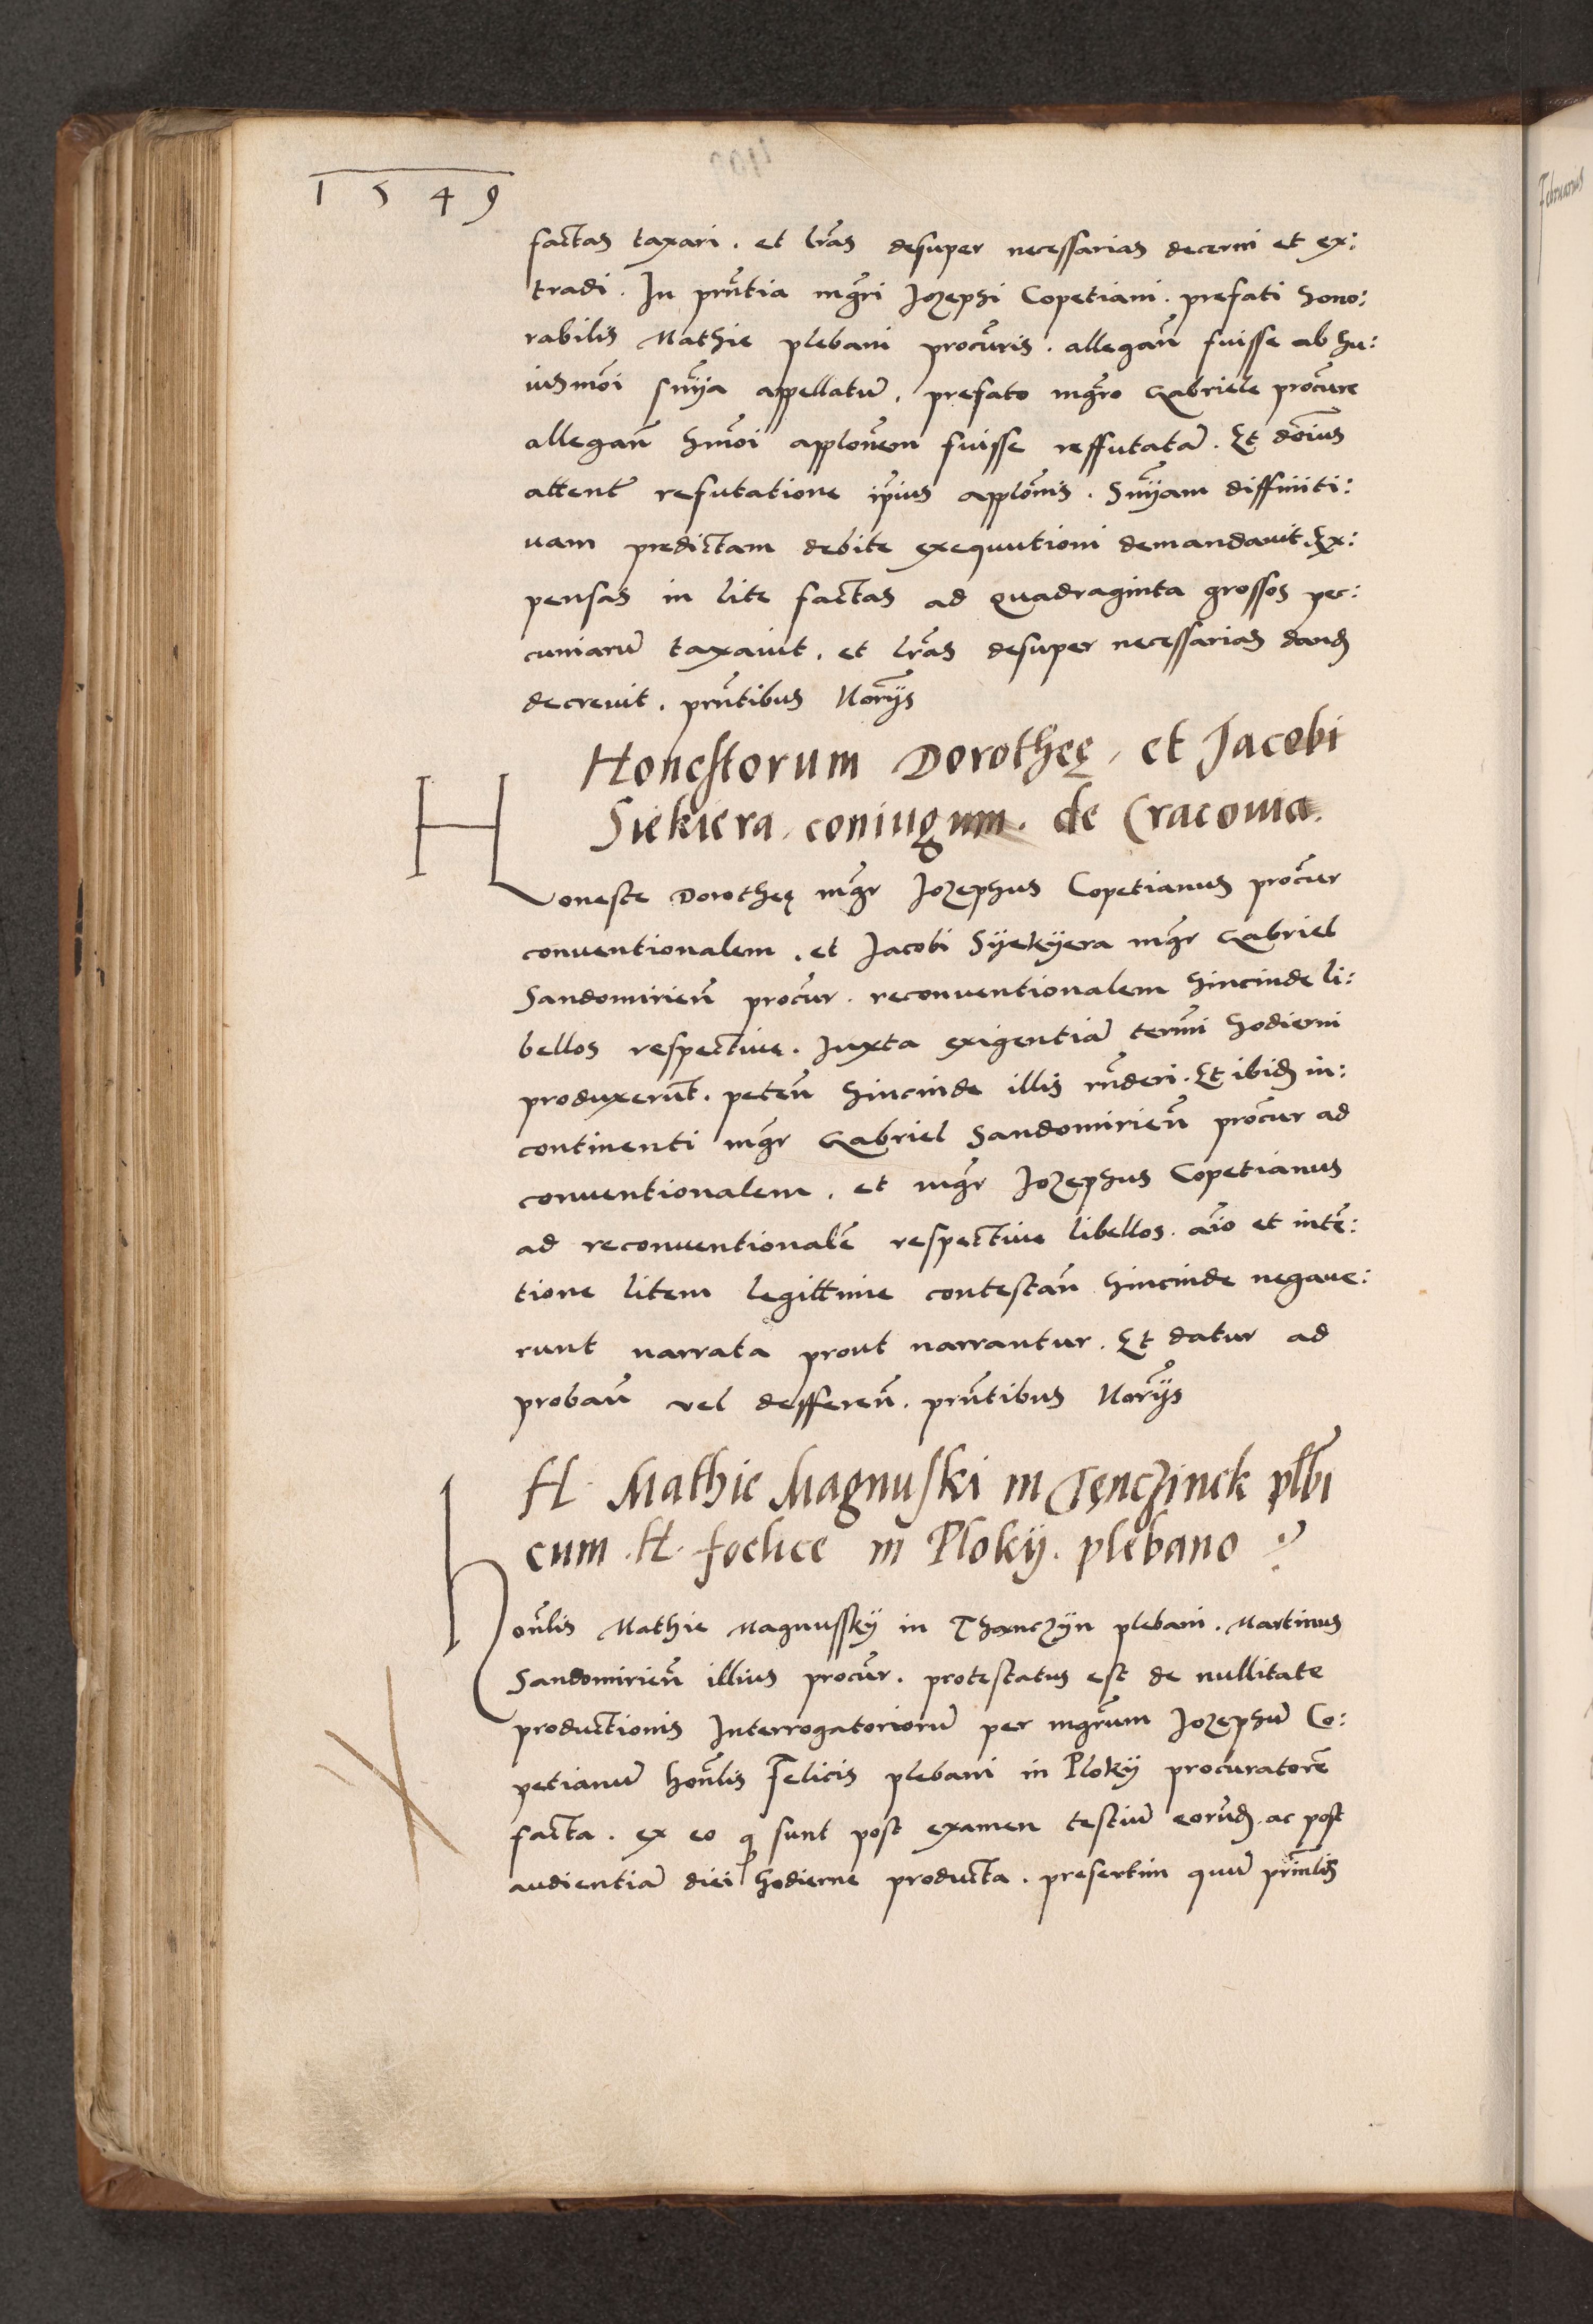 1549
factas taxari. et lr̃as desuper necessarias decerni et ex:
tradi. In prñtia mgr̃i Jozephi Copetiani. prefati hono:
rabilis Mathie plebani procũris. allegañ fuisse ab hu:
iusmõi snỹa appellatũ. prefato mgr̃o Gabriele procũre
allegañ hmõi applõnem fuisse reffutatã. Et dõnius
attent̃ refutatione ip̃ius applõnis. Snỹam diffiniti:
uam predictam debite exequutioni demandauit. Ex:
pensas in lite factas ad quadraginta grossos pec:
cuniarũ taxauit. et lr̃as desuper necessarias dand
decreuit. prñtibus Nor̃ijs
Honestorum Dorotheę, et Jacobi
Siekiera, coniugum. de Cracouia.
Honeste Dorotheę mgr̃ Jozephus Copetianus procũr
conuentionalem. et Jacobi Syekyera mgr̃ Gabriel
Sandomirieñ procũr. reconuentionalem hincinde li:
bellos respectiue. Juxta exigentiã term̃i hodierni
produxerũt. peteñ hincinde illis rñderi. Et ibid in:
continenti mgr̃ Gabriel Sandomirieñ procũr ad
conuentionalem. et mgr̃ Jozephus Copetianus
ad reconuentionalẽ respectiue libellos. aĩo et intẽ:
tione litem legittime contestañ hincinde negaue:
runt narrata prout narrantur. Et datur ad
probañ vel deffereñ. prñtibus Nor̃ijs
H. Mathie Magnuski in Tęnczinek plb̃i
cum .H. foelice in Ploky. plebano
Honl̃is Mathie Magnussky in Thanczyn plebani. Martinus
Sandomirieñ illius procũr. protestatus est de nullitate
productionis Interrogatoriorũ per mgr̃um Jozephũ Co:
petianũ honl̃is Felicis plebani in Ploky procuratorẽ
facta. ex eo q sunt post examen testiũ eorũd. ac post
audientiã diei hodierne producta. presertim quũ prinl̃is
Februarius